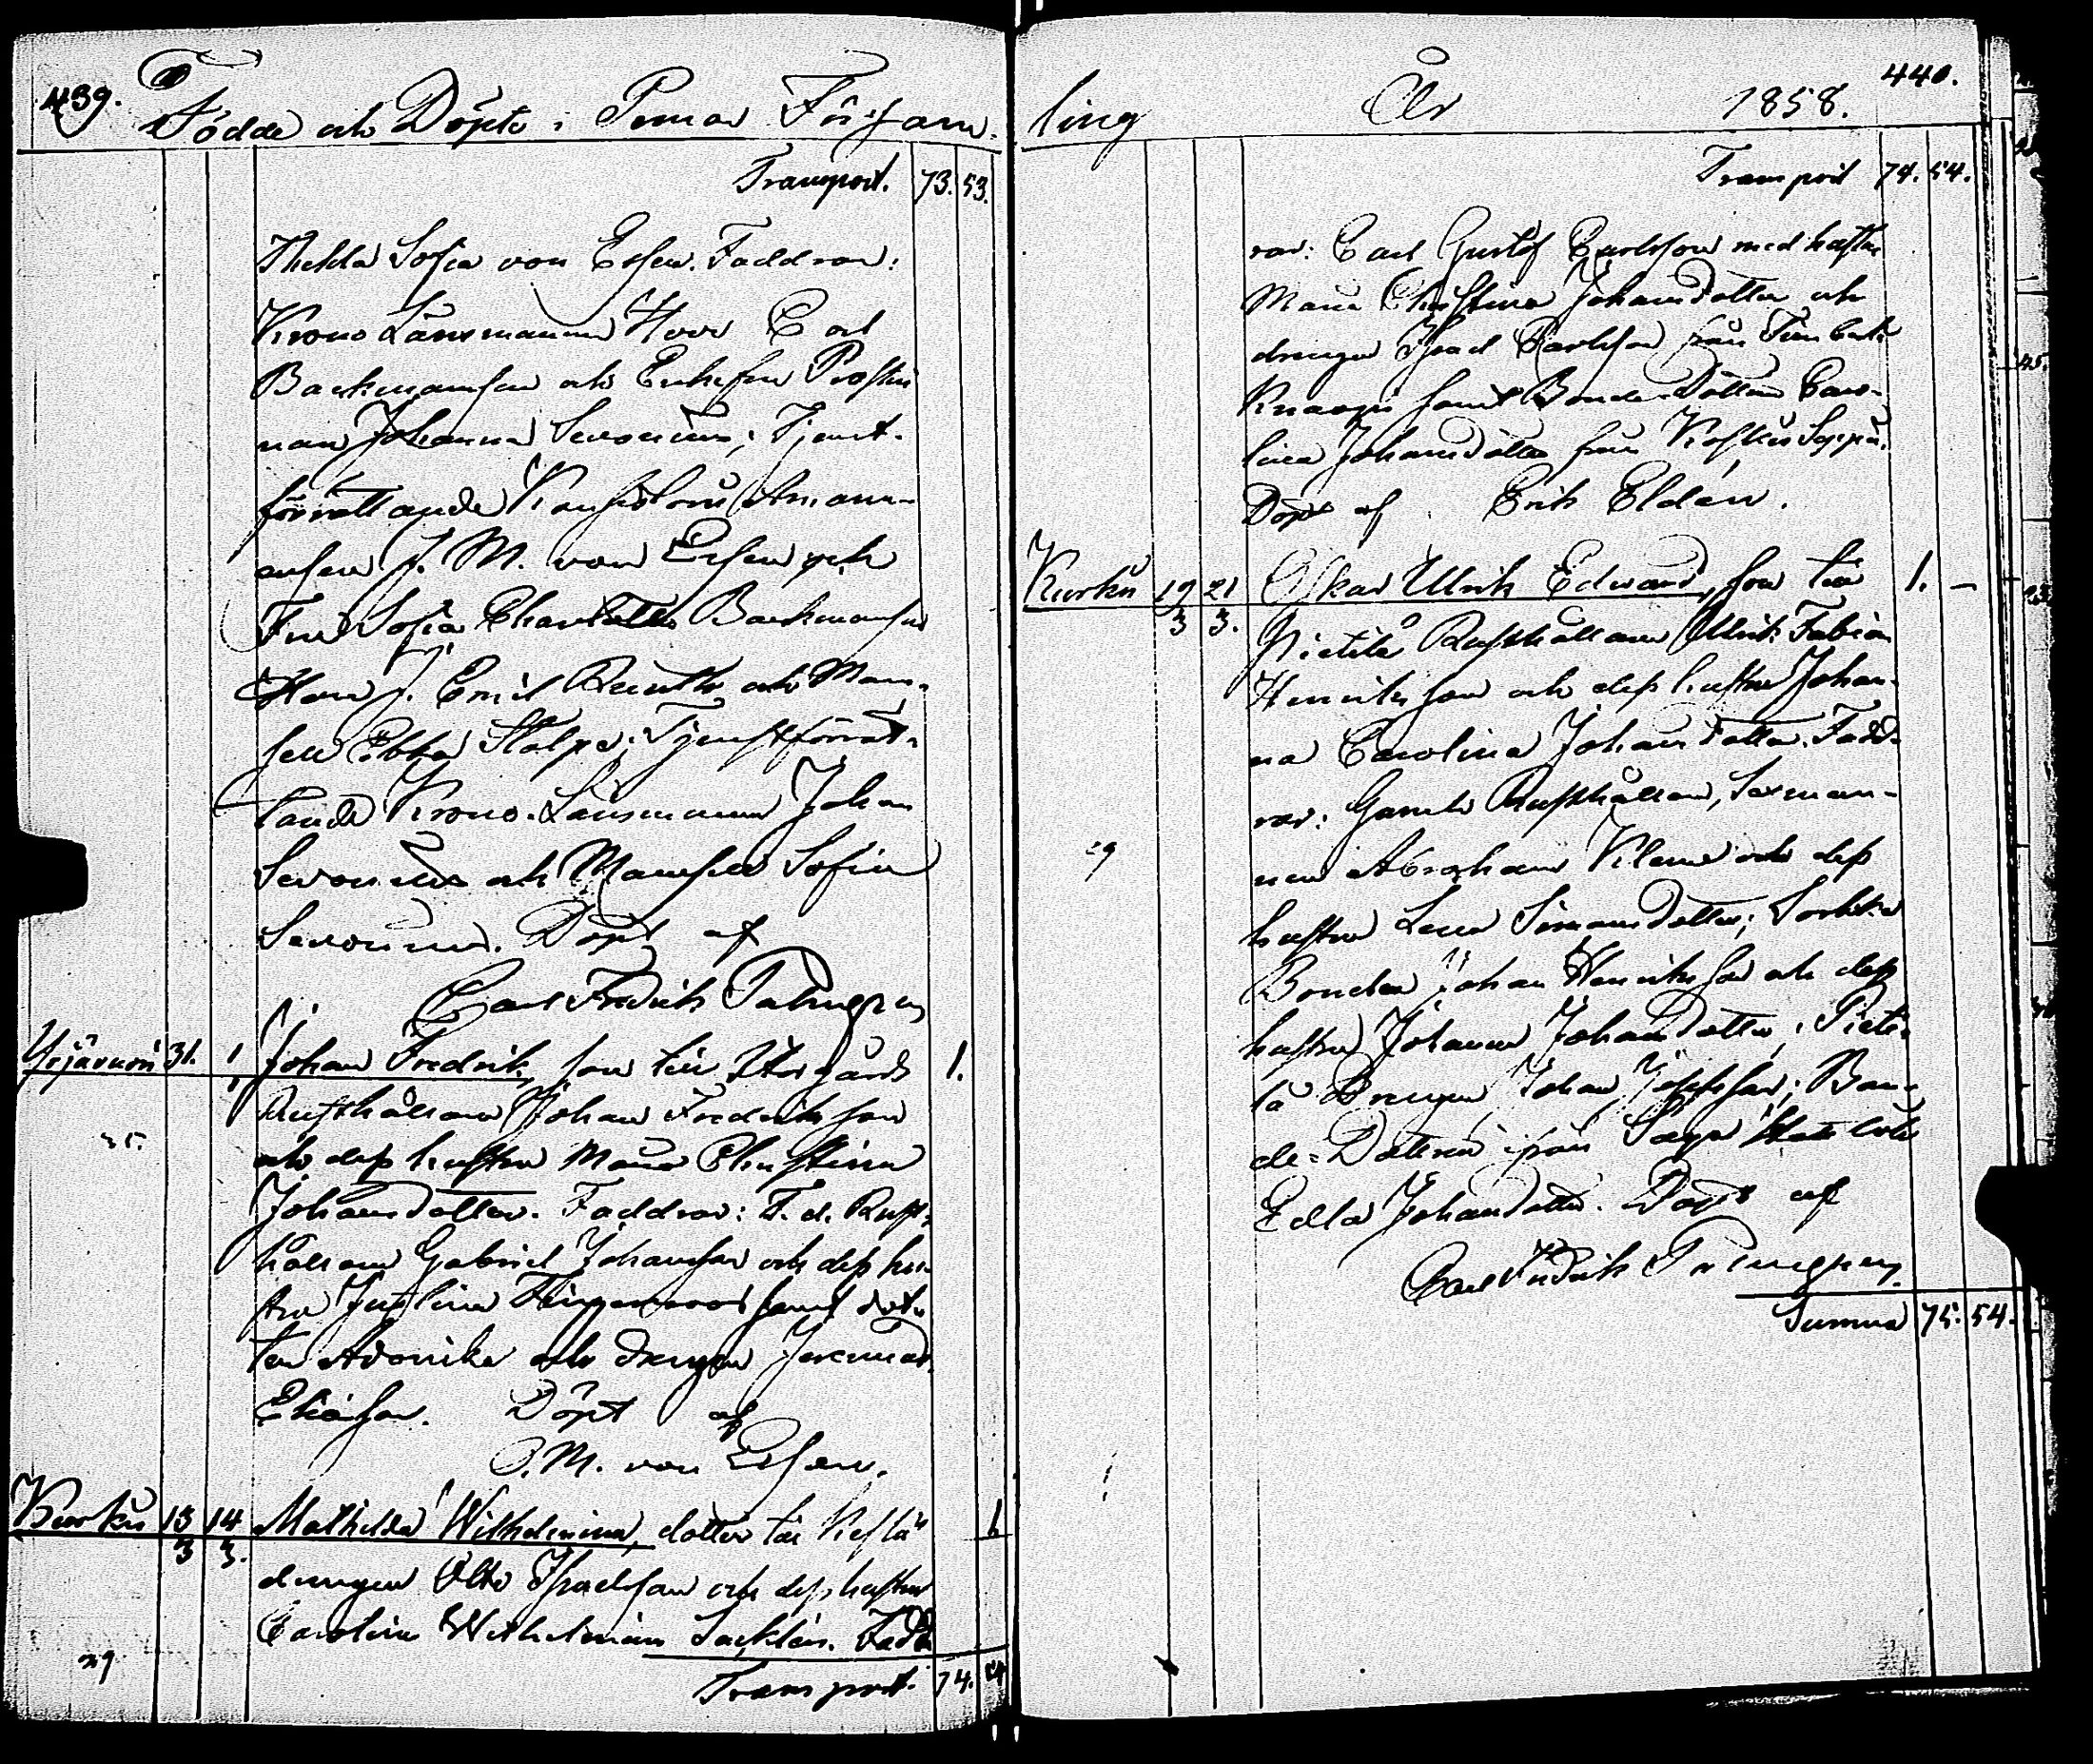 439.
Födde och Döpte i Pemar Försam-
Transport. 73. 53.
Thekla Sofia von Essen. Faddrar:
Krono Länsmannen Herr Carl
Backmansson och Enkefru Prostin-
nan Johanna Savonius; Tjenst-
förrättande Konsistorii Amanu-
ensen J. M. von Essen och
Fru Sofia Charlotta Backmansson
Herr J. Emil Reuth och Mam-
sell Ebba Stolpe; Tjenstförrät-
tande Krono-Länsmannen Johan
Savonius och Mamsell Sofia
Savonius. Döpt af
Carl Fredrik Palmgren
Yrjänuori 31. 1 Johan Fredrik, son till gårds 1.
Rusthållaren Johan Fredriksson
35
och dess hustru Maria Christina
Johansdotter. Faddrar: F. d. Rust-
hållaren Gabriel Johansson och dess hu-
stru Justina samt dot-
ten och drengen Jeremias
Eliasson. Döpt af
J. M. von Essen.
Kurku 13 14 Mathilda Wilhelmina, dotter till 1
3 3.
drengen Otto Israelsson och dess hustru
Carolina Wilhelmina Facklén. Fadd
29
Transport. 74. 54
440.
ling År 1858.
Transport 74. 54.
rar: Carl Gustaf Carlsson med hustru
Maria Christina Johansdotter och
drengen Israel Carlsson från
samt Bonde-Dottren Caro-
lina Johansdotter från Koskis Seppä.
Döpt af Erik Eldén.
Kurku 19 21 Oskar Ulrik Edward, son till 1. –
3 3.
Pietilä Rusthållaren Ulrik Fabian
Henriksson och dess hustru Johan-
na Carolina Johansdotter. Fadd-
rar: Gamla Rusthållaren, Sexman-
29
nen Abraham Klemo och dess
hustru Lena Simonsdotter;
Bonden Johan Henriksson och dess
hustru Johanna Johansdotter; Pieti-
lä Drengen Johan Josefsson; Bon-
de-Dottren från
Edla Johansdotter. Döpt af
Carl Fredrik Palmgren.
Summa 75. 54.